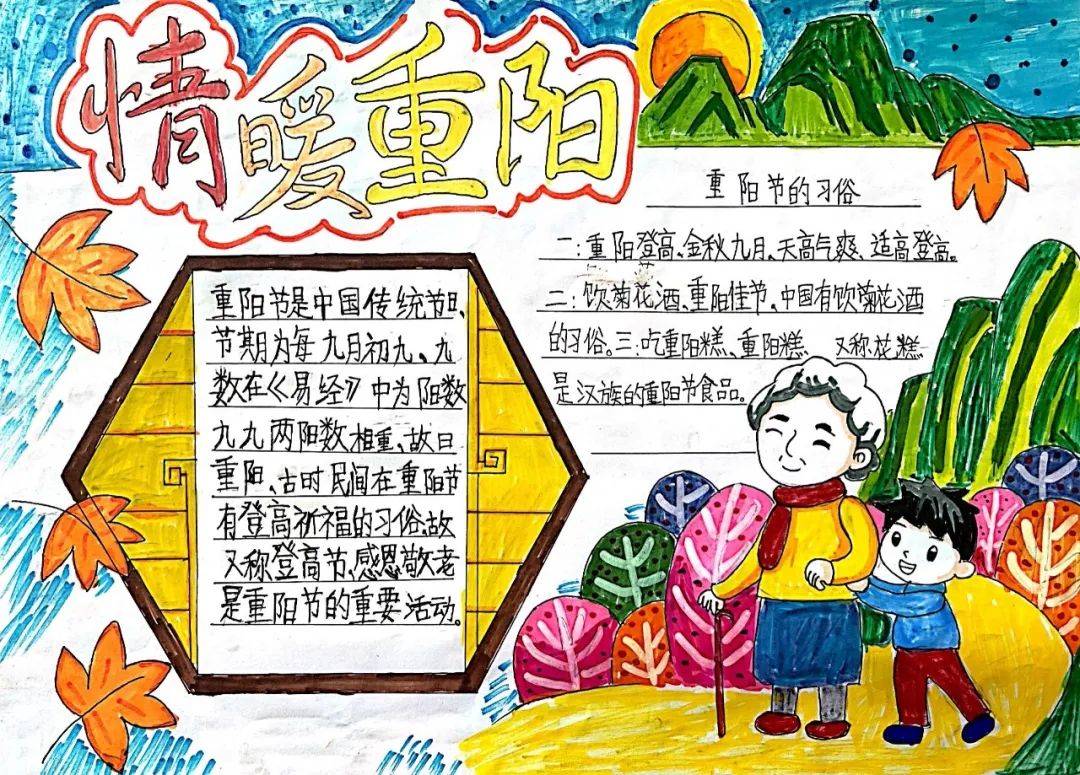 情暖重阳
重阳节是中国传统节日、
节期为每九月初九、九
数在《易经》中为阳数
九九两阳数相重、故曰
重阳、古时民间在重阳节
有登高祈福的习俗、故
又称登高节、感恩敬老
是重阳节的重要活动。
重阳节的习俗
一:重阳登高、金秋九月、天高气爽、适高登高。
二:饮菊花酒、重阳佳节、中国有饮菊花酒
的习俗。三:吃重阳糕、重阳糕、又称花糕
是汉族的重阳节食品。